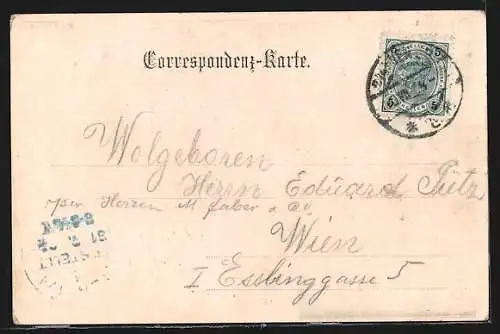 Correspondenz-Karte.
Wolgeboren
Herrn Eduard Pütz
per Herren M Faber & Co
Wien
I Esslinggasse 5
5 5